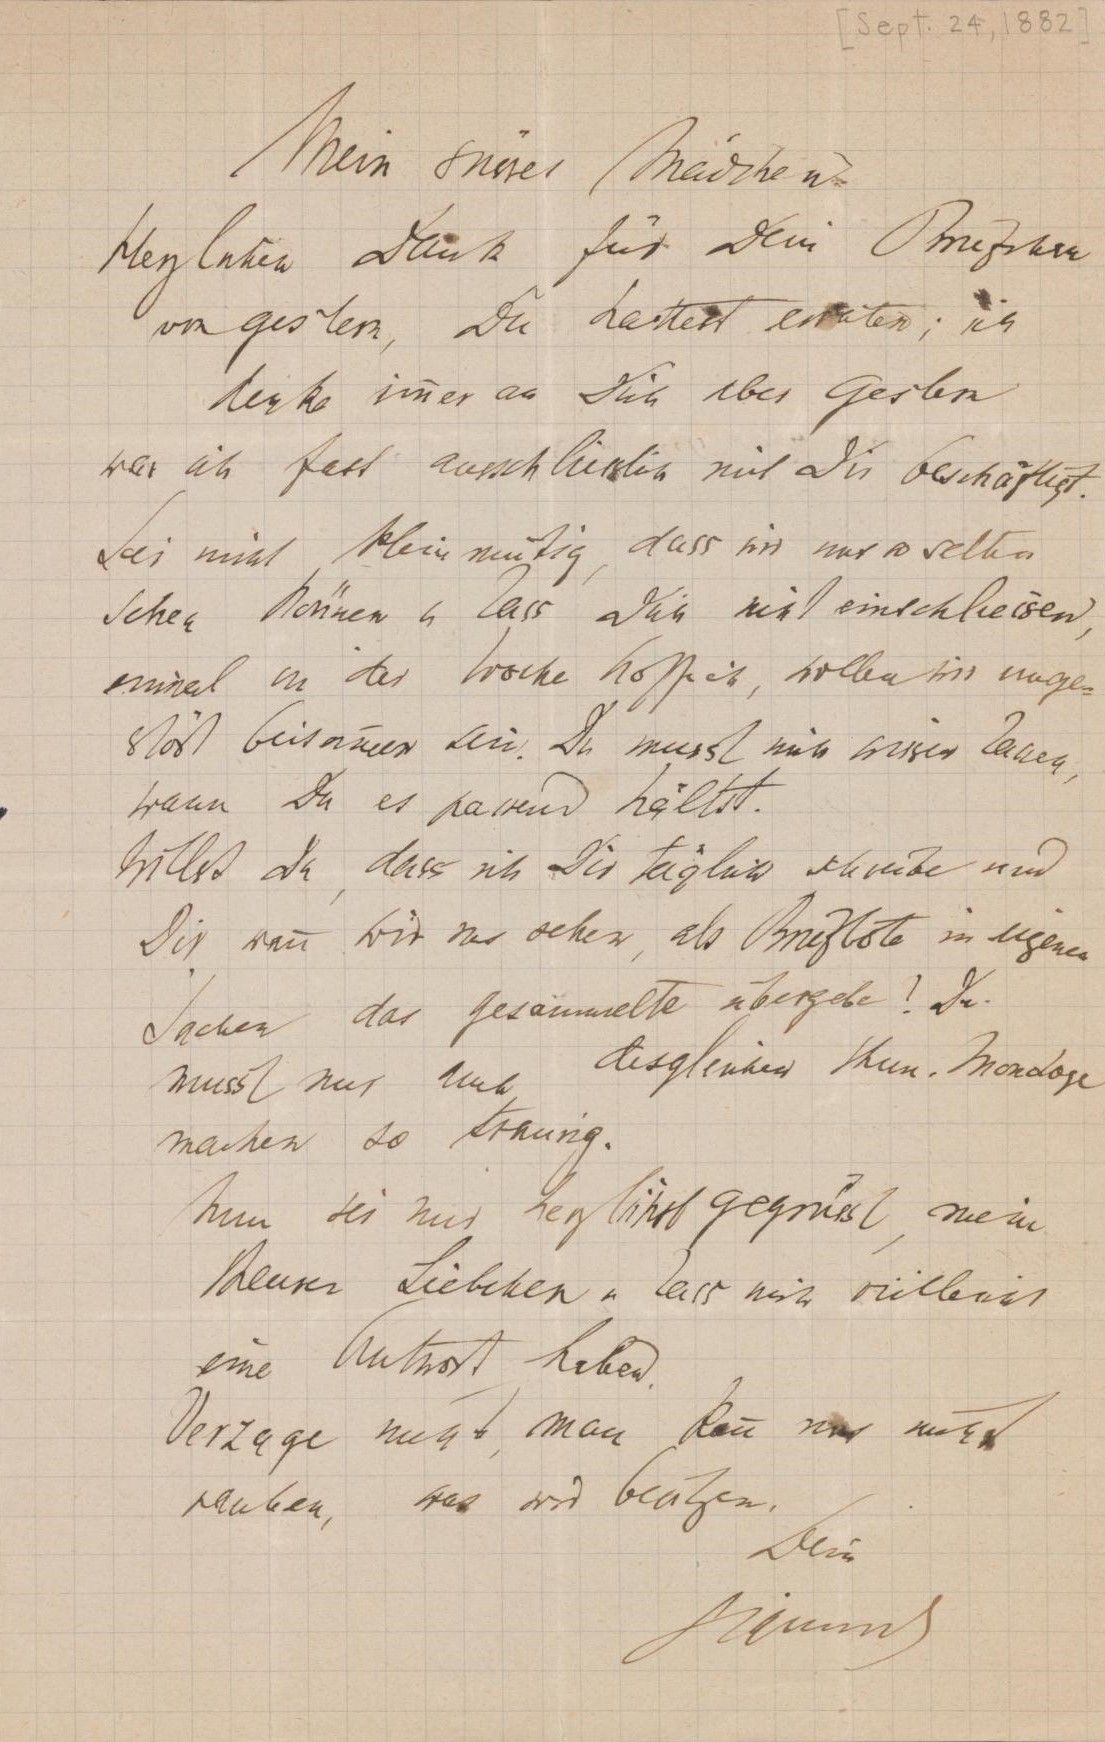 [Sept. 24, 1882]
Mein süsses Mädchen
Herzlichen Dank für Dein Briefchen
von gestern, Du hattest erraten; ich
denke im̅er an Dich aber gestern
war ich fast ausschliesslich mit Dir beschäftigt.
Sei nicht kleinmütig, dass wir uns so selten
sehen können u lass Dich nicht einschliessen,
einmal in der Woche hoff ich, wollen wir unge=
stört beisam̅en sein. Du musst mich wissen lassen,
wann Du es passend hältst.
Willst Du, dass ich Dir täglich schreibe und
Dir wan̅ wir uns sehen, als Briefbote in eigenen
Sachen das gesammelte übergebe? Du
musst nur auch desgleichen thun. Montage
machen so traurig.
Nun sei mir herzlichst gegrüsst, mein
theures Liebchen u lass mich vielleicht
eine Antwort haben.
Verzage nicht, man kan̅ uns nicht
rauben, was wir besitzen.
Dein
Sigmund